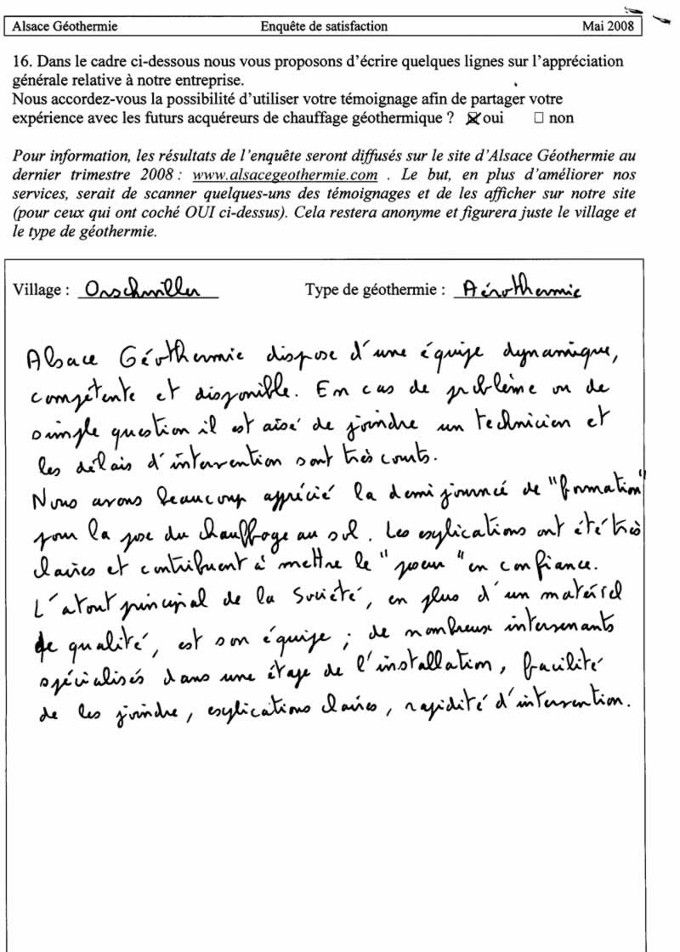 Alsace Géothermie Enquête de satisfaction Mai 2008
16. Dans le cadre ci-dessous nous vous proposons d'écrire quelques lignes sur l'appréciation
générale relative à notre entreprise.
Nous accordez-vous la possibilité d'utiliser votre témoignage afin de partager votre
expérience avec les futurs acquéreurs de chauffage géothermique ? ☒ oui ☐ non
Pour information, les résultats de l'enquête seront diffusés sur le site d'Alsace Géothermie au
dernier trimestre 2008 : www.alsacegeothermie.com . Le but, en plus d'améliorer nos
services, serait de scanner quelques-uns des témoignages et de les afficher sur notre site
(pour ceux qui ont coché OUI ci-dessus). Cela restera anonyme et figurera juste le village et
le type de géothermie.
Village : Orschwiller Type de géothermie : Aérothermie
Alsace Géothermie dispose d'une équipe dynamique,
compétente et disponible. En cas de problème ou de
simple question il est aisé de joindre un technicien et
les délais d'intervention sont très courts.
Nous avons beaucoup apprécié la demi journée de "formation"
pour la pose du chauffage au sol. Les explications ont été très
claires et contribuent à mettre le "poseur" en confiance.
L'atout principal de la Société, en plus d'un matériel
de qualité, est son équipe ; de nombreux intervenants
spécialisés dans une étape de l'installation, facilité
de les joindre, explications claires, rapidité d'intervention.